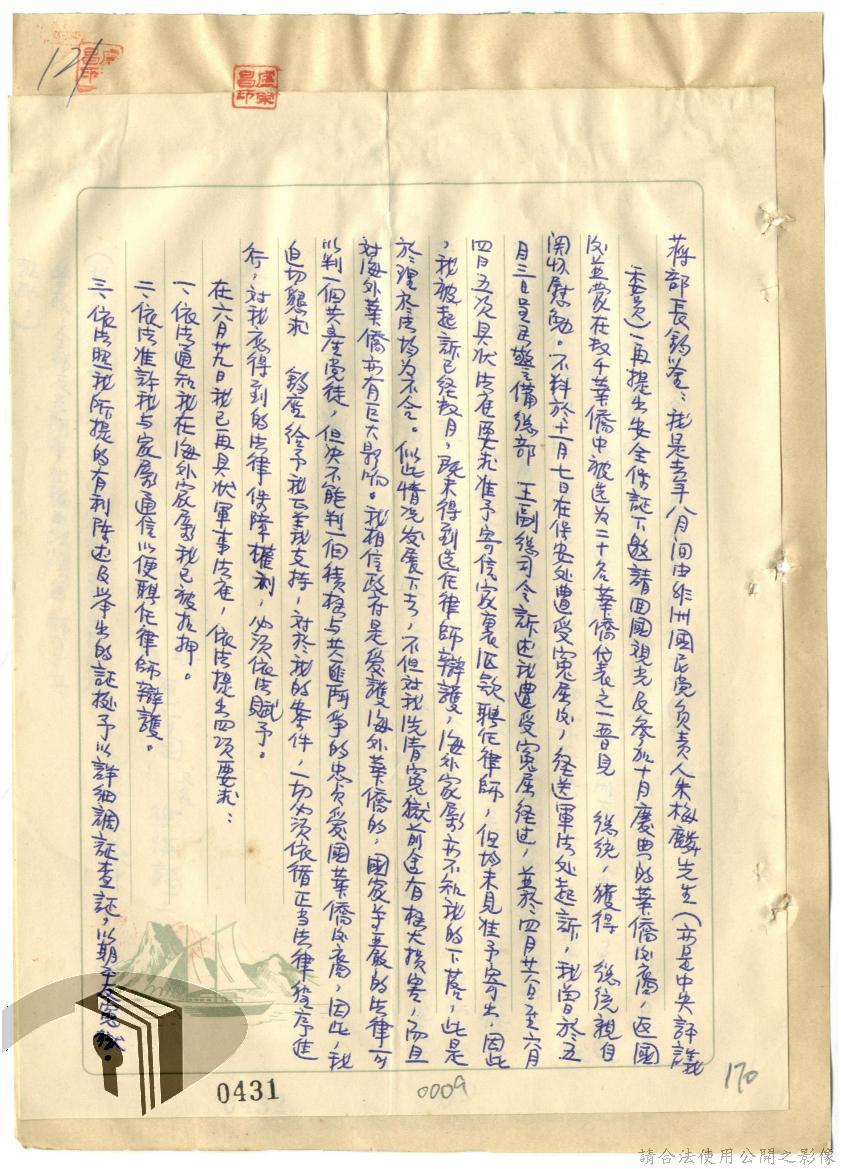 蔣部長鈞鑒：我是去年八月间由非洲國民党负责人朱梅麟先生（亦是中央評議
委员）一再提出安全保証下邀請回國視光及參加十月慶典的華僑改裔，返國
後並蒙在数千華僑中被选为二十名華僑代表之一晋見 總統，獲得 總統親自
関怀慰勉。不料於十一月七日在保安处遭受寃屈后，经送軍法处起訴，我曾於五
月三日呈国警備總部 王副總司令訴述我遭受寃屈経过，並於四月廿八日至六月
四日五次具状法庭要求准予寄信家裏汇款聘任律師，但均未見准予寄出，因此
，我被起訴已経数月，既未得到选任律師辯護，海外家屬亦不知我的下落，此是
於理於法均为不合。似此情况发展下去，不但对我洗清寃獄前途有極大损害，而且
对海外華僑亦有巨大影响。我相信政府是爱護海外華僑的，國家尊嚴的法律可
以判一個共產党徒，但决不能判一個積極与共匪鬥爭的忠贞爱國華僑改裔，因此，我
迫切懇求 鈞座给予我正義支持，对於我的案件，一切必须依循正当法律程序進
行，对我应得到的法律保障權利，必须依法賦予。
在六月廿九日我已再具状軍事法庭，依法提出四項要求：
一、依法通知我在海外家屬我已被羈押。
二、依法准許我与家屬通信以便聘任律師辯護。
三、依法照我所提的有利陈述及举出的証据予以詳細調証查証，以期平反寃獄。
121
盧榮昌印
0431
0009
170
請合法使用公開之影像